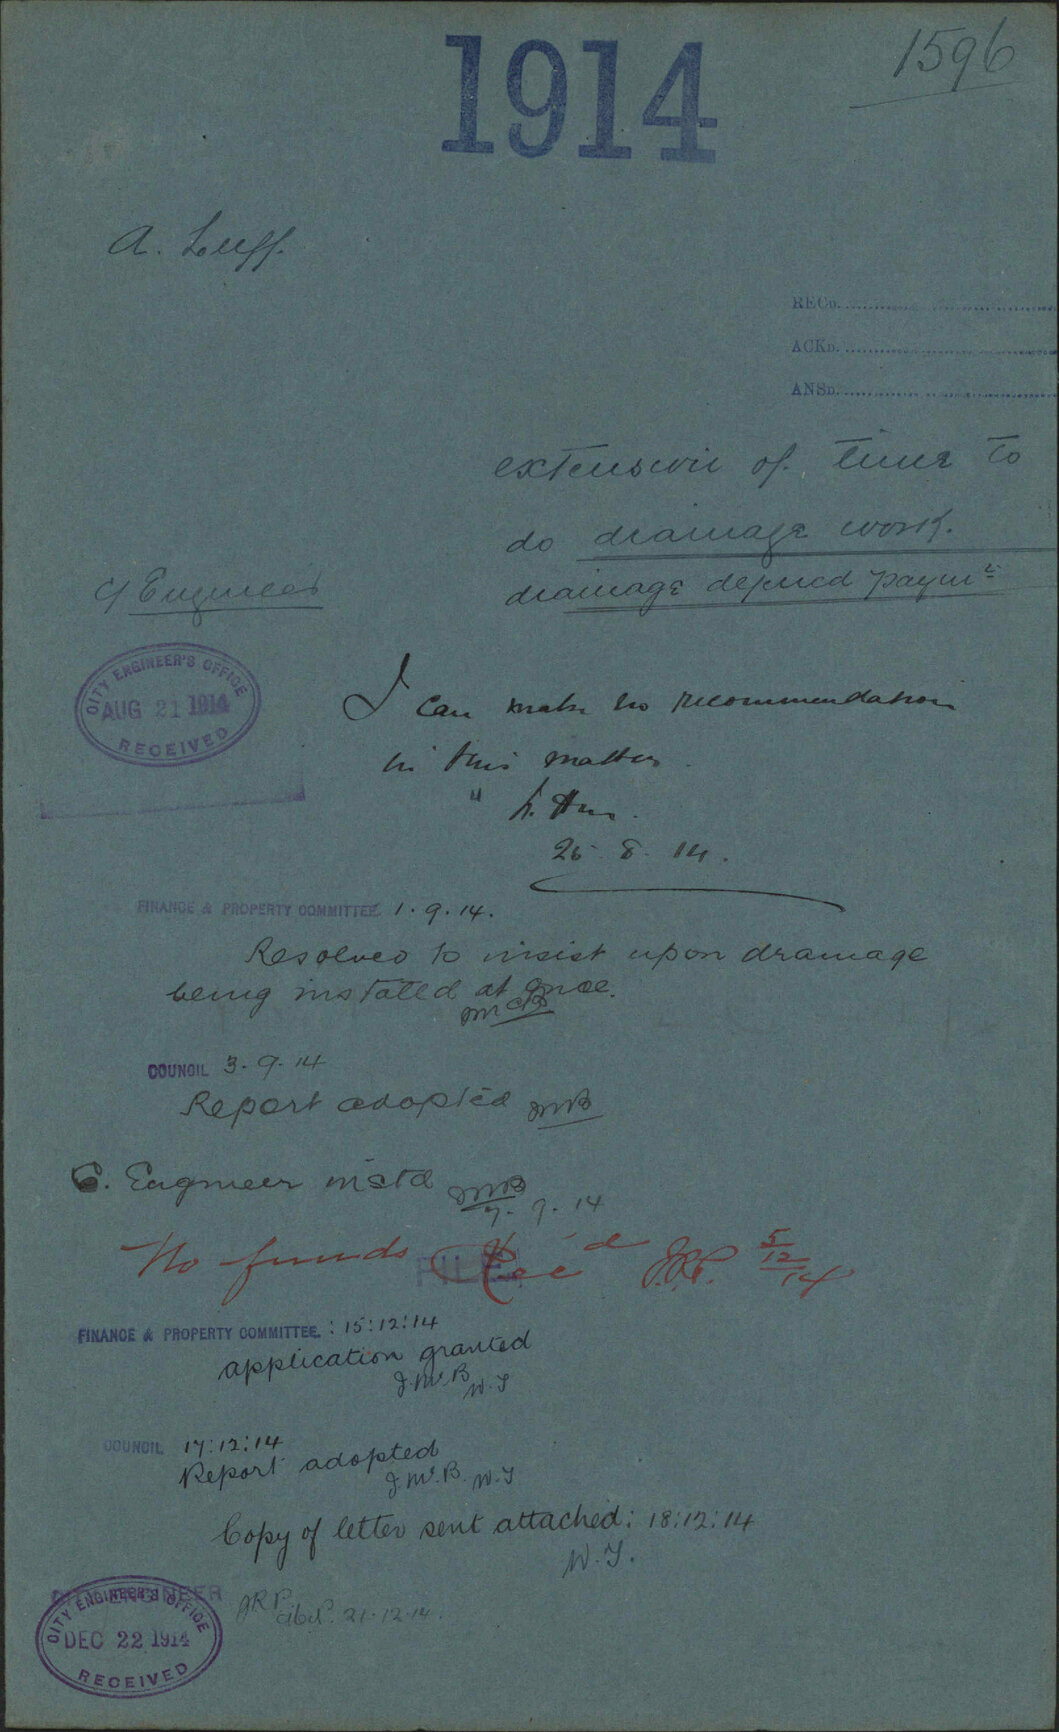 1596
1914
A. Luff.
RECD.
ACKD.
ANSD.
extension of time to
do drainage work.
drainage deferred paymt
C/ Engineer
CITY ENGINEER'S OFFICE
AUG 21 1914
RECEIVED
I can make no recommendation
in this matter.
25.8.14.
FINANCE & PROPERTY COMMITTEE 1.9.14.
Resolved to insist upon drainage
being installed at once.
COUNCIL 3.9.14
Report adopted
C. Engineer instd
7.9.14
FILE
No funds Rec'd J.R.P. 5/12/14
FINANCE & PROPERTY COMMITTEE: 15:12:14
application granted
J.McB. W.T
COUNCIL 17:12:14
Report adopted
J.McB. W.T
Copy of letter sent attached: 18:12:14
W.T.
CITY ENGINEER
JRP 21.12.14.
CITY ENGINEER'S OFFICE
DEC 22 1914
RECEIVED